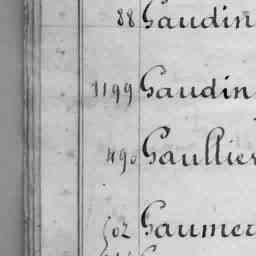 88 Gaudin
1199 Gaudin
490 Gaullier
502 Gaumer